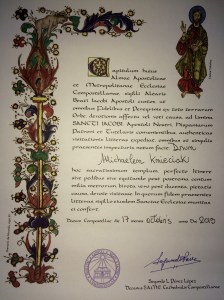 Capitulum huius
Almae Apostolicae
et Metropolitanae Ecclesiae
Compostellanae sigilli Altaris
Beati Iacobi Apostoli custos ut
omnibus Fidelibus et Peregrinis ex toto terrarum
Orbe, devotionis affectu vel voti causa, ad limina
SANCTI IACOBI Apostoli Nostri Hispaniarum
Patroni et Tutelaris convenientibus authenticas
visitationis litteras expediat omnibus et singulis
praesentes inspecturis notum facit: Dnum
Michaelem Kniecik
hoc sacratissimum templum perfecto itinere
sive pedibus sive equitando post postrema centum
milia metrorum birota vero post ducenta, pietatis
causa devote visitasse. In quorum fidem praesentes
litteras sigillo eiusdem Sanctae Ecclesiae munitas
ei confert.
Datum Compostellae die 17 mensis octobris anno Dni 2015
Segundo L. Pérez López
Decanus S.A.M.E. Cathedralis Compostellanae